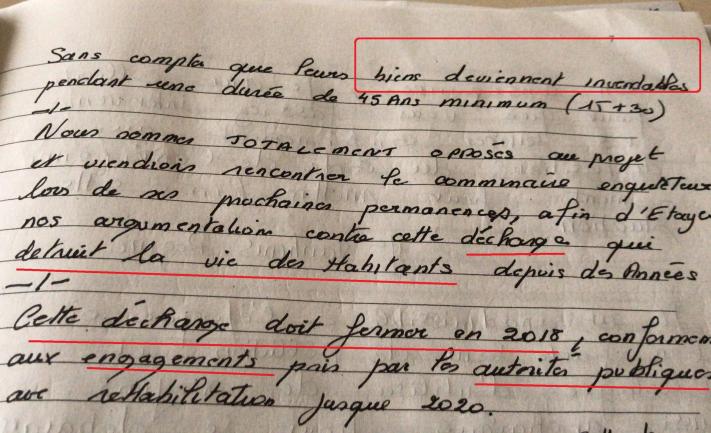 Sans compter que leurs biens deviennent invendables
pendant une durée de 45 Ans minimum (15+30)
-/-
Nous sommes TOTALEMENT opposés au projet
et viendrons rencontrer le commissaire enquêteur
lors de ses prochaines permanences, afin d'Etayer
nos argumentation contre cette décharge qui
detruit la vie des Habitants depuis des Années
-/-
Cette décharge doit fermer en 2018, conformem
aux engagements pris par les autorités publiques
avec réhabilitation jusque 2020.